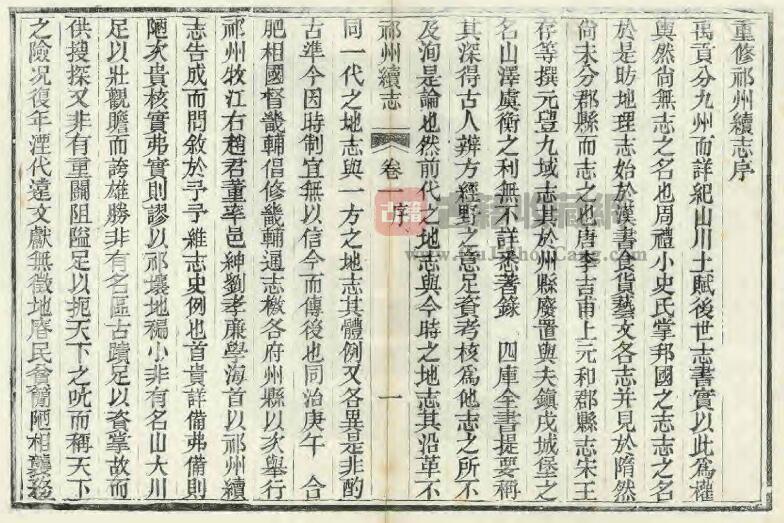 重修祁州續志序
禹貢分九州而詳紀山川土賦後世志書實以此為權
輿然尙無志之名也周禮小史氏掌邦國之志志之名
於是昉地理志始於漢書食貨藝文各志並見於隋然
尙未分郡縣而志之也唐李吉甫上元和郡縣志宋王
存等撰元豐九域志其於州縣廢置與夫鎭戍城堡之
名山澤虞衡之利無不詳悉著錄 四庫全書提要稱
其深得古人辨方經野之意足資考核為他志之所不
及洵是論也然前代之地志與今時之地志其沿革不
祁州續志 卷一 序 一
同一代之地志與一方之地志其體例又各異是非酌
古準今因時制宜無以信今而傳後也同治庚午 合
肥相國督畿輔倡修畿輔通志檄各府州縣以次舉行
祁州牧江右趙君董率邑紳劉孝廉學海首以祁州續
志告成而問敘於予予維志史例也首貴詳備弗備則
陋次貴核實弗實則謬以祁壤地褊小非有名山大川
足以壯觀瞻而誇雄勝非有名區古蹟足以資掌故而
供搜探又非有重關阻隘足以扼天下之吭而稱天下
之險况復年湮代遠文獻無徵地瘠民貧簡陋相襲務
古籍
www.GuJiShouCang.com